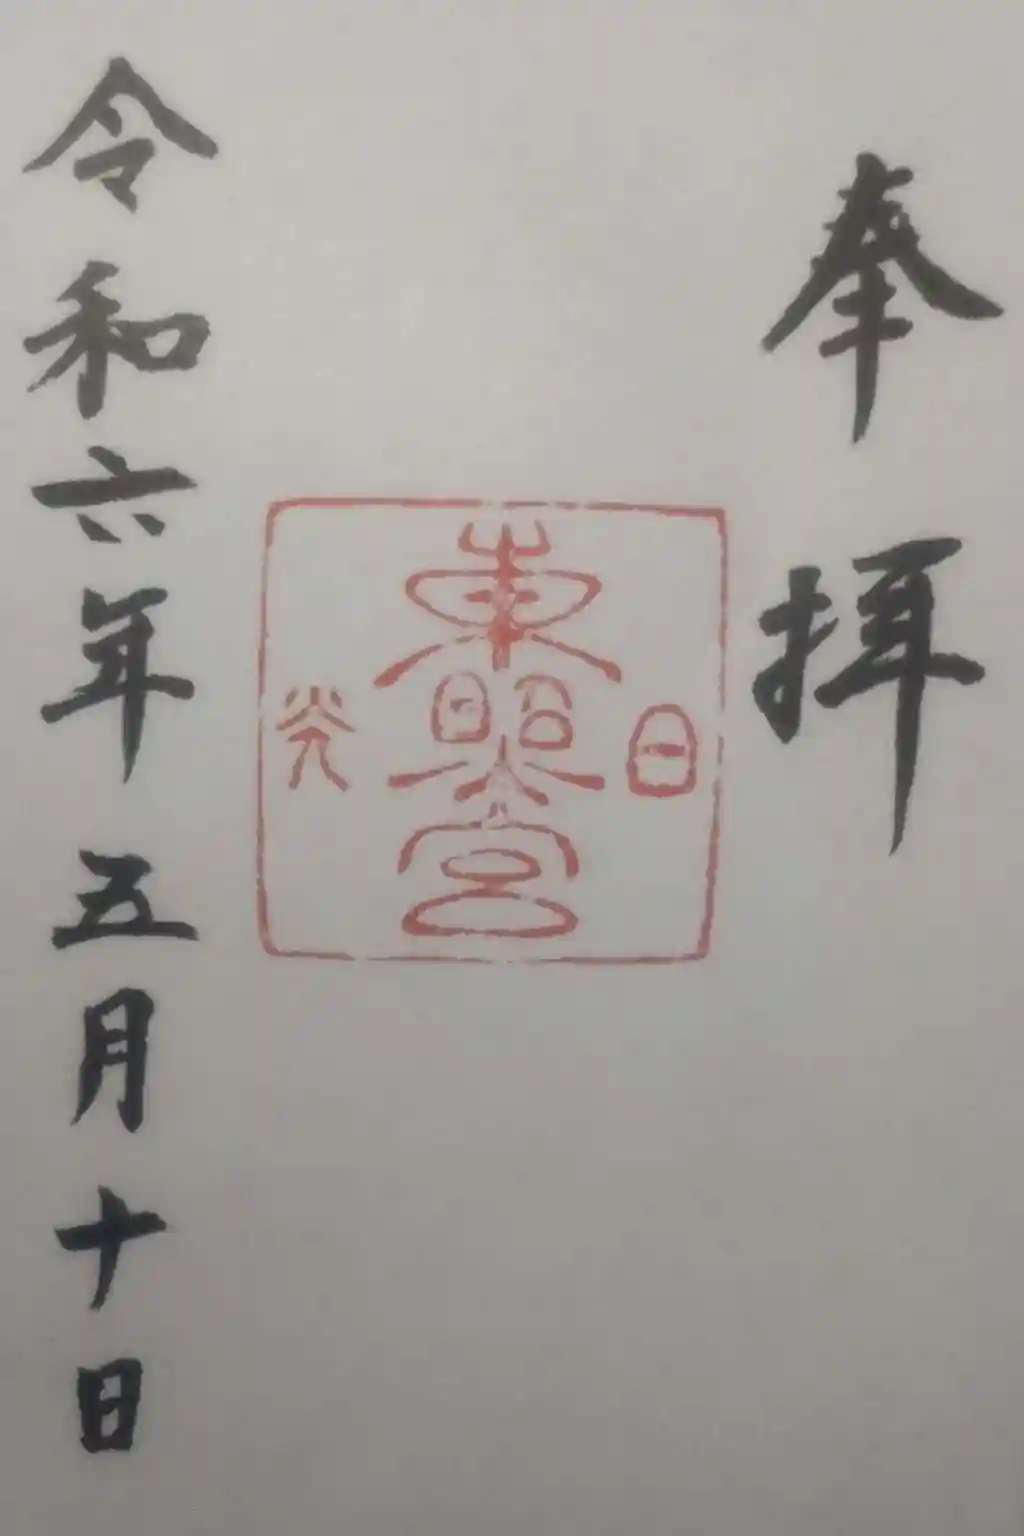 奉拝
日
東照宮
光
令和六年五月十日